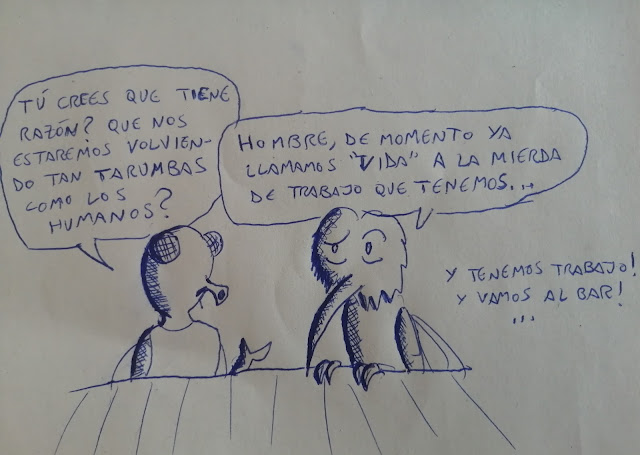 TÚ CREES QUE TIENE
RAZÓN? QUE NOS
ESTAREMOS VOLVIEN-
DO TAN TARUMBAS
COMO LOS
HUMANOS?
HOMBRE, DE MOMENTO YA
LLAMAMOS "VIDA" A LA MIERDA
DE TRABAJO QUE TENEMOS...
Y TENEMOS TRABAJO!
Y VAMOS AL BAR!
...